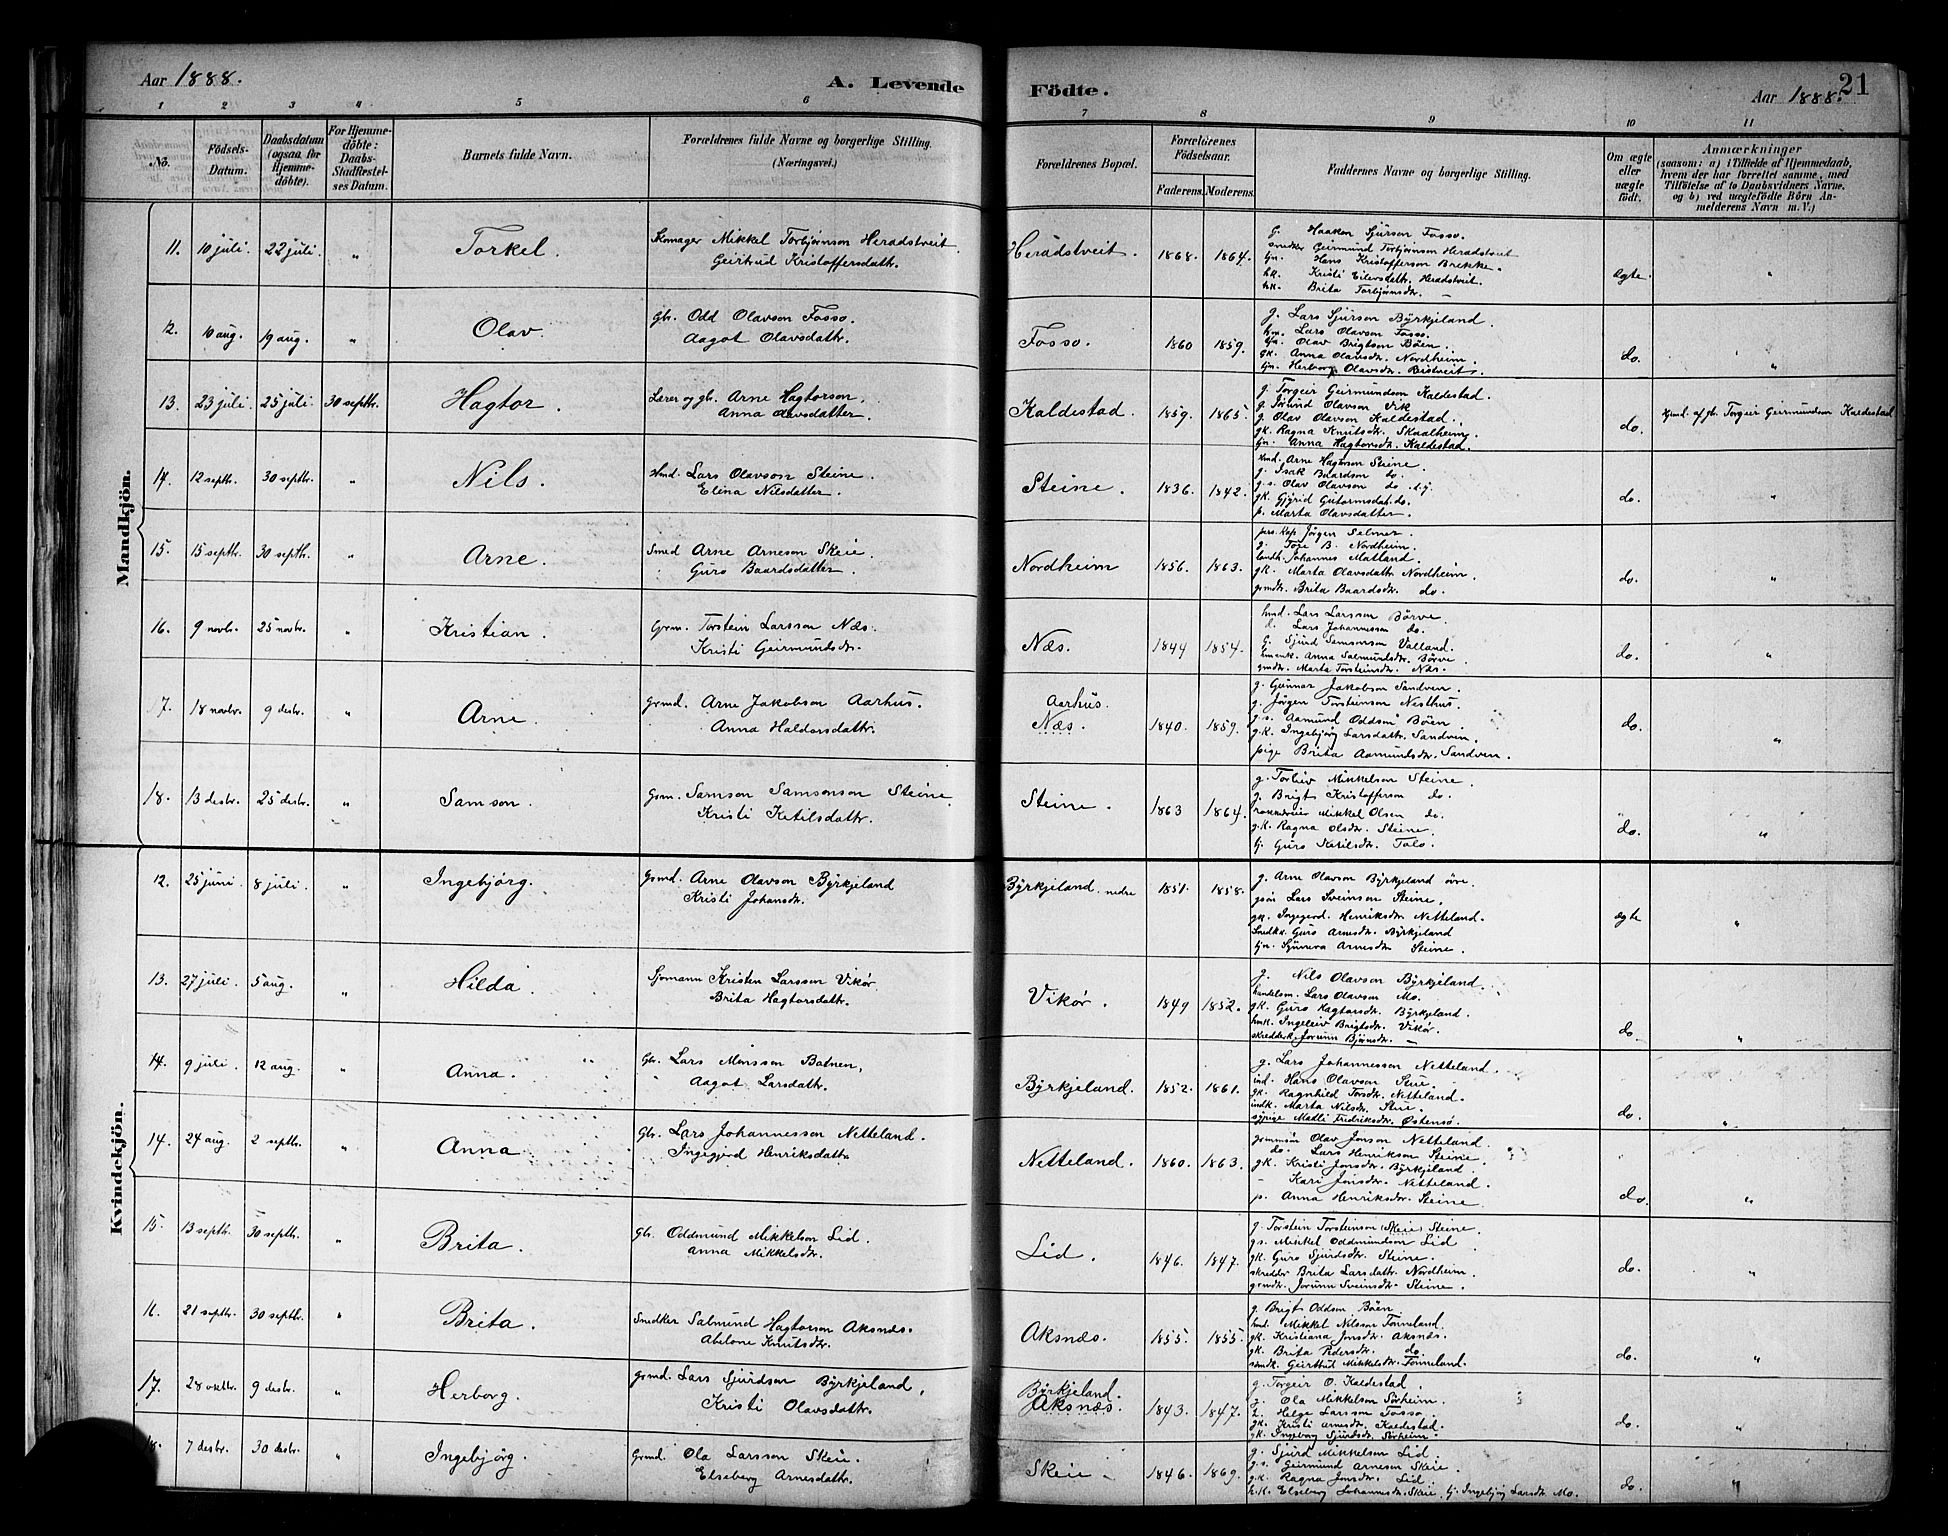 Aar 1888.
A. Levende
Födte.
Aar 1888.
21
1 2 3 4 5 6 7 8 9 10 11
No.
Födsels-Datum.
Daabsdatum (ogsaa for Hjemme-döbte).
For Hjemme-döbte: Daabs-Stadfæstel-ses Datum.
Barnets fulde Navn.
Forældrenes fulde Navne og borgerlige Stilling.
(Næringsvei.)
Forældrenes Bopæl.
Forældrenes Födselsaar.
Faderens. Moderens.
Faddernes Navne og borgerlige Stilling.
Om ægte eller uægte födt.
Anmærkninger
(saasom: a) i Tilfælde af Hjemmedaab,
hvem der har forrettet samme, med
Tilföielse af to Daabsvidners Navne,
og b) ved uægtefödte Börn An-
melderens Navn m. V.)
Mandkjön.
11. 10 juli. 22 juli. " Torkel. Skomager Mikkel Torbjørnson Heradstveit
Geirtrud Kristoffersdatr.
Heradstveit. 1868. 1864.
G. Haakon Sjurson Fosso.
snedker Geirmund Torbjørnson Heradstveit
tjn. Hans Kristofferson Brekke.
hk. Kristi Eilevsdatr. Heradstveit.
hk. Brita Torbjørnsdr. —
ægte. "
12. 10 aug. 19 aug. " Olav. Gbr. Odd Olavson Fosso.
Aagot Olavsdatr.
Fosso. 1860 1859.
g. Lars Sjurson Byrkjeland.
hm. Lars Olavson Fosso.
tjn. Olav Brigtson Böen.
gk. Anna Olavsdr. Nordheim.
tjn. Herborg Olavsdr. Reistveit.
do. "
13. 23 juli. 25 juli. 30 septbr. Hagtor. Lærer og gb. Arne Hagtorson,
Anna Olavsdatter.
Kaldestad. 1859. 1865.
g. Torgeir Geirmundson Kaldestad.
g. Jörund Olavson Vik
g. Olav Olavson Kaldestad.
gk. Ragna Knutsdr. Skaalheim.
tjn. Anna Hagtorsdr. Kaldestad.
do. Hjmd. af gb. Torgeir Geirmundson Kaldestad
14. 12 septbr. 30 septbr. " Nils. Hmd. Lars Olavson Steine.
Elina Nilsdatter.
Steine. 1836. 1842.
Hmd. Arne Hagtorson Steine.
g. Isak Baardson do.
g.s. Olav Olavson do.
gk. Gjyrid Gutormsdat. do.
p. Marta Olavsdatter.
do. "
15. 15 septbr. 30 septbr. " Arne. Smed Arne Arneson Skeie.
Guro Baardsdatter.
Nordheim 1856. 1863.
pers. Kap. Jörgen Selmer.
g. Tore B. Nordheim.
landh. Johannes Matland.
gk. Marta Olavsdatr. Nordheim.
grmdr. Brita Baardsdr. do.
do. "
16. 9 novbr. 25 novbr. " Kristian. Grm. Torstein Larsson Næs.
Kristi Geirmundsdr.
Næs. 1844 1854.
hmd. Lars Larsson Börve.
d. Lars Johannesson do.
G. Sjurd Samsonson Valland.
hmenk. Anna Salmundsdr. Börve.
gmdr. Marta Torsteinsdr. Næs.
do. "
17. 18 novbr. 9 desbr. " Arne. Grmd. Arne Jakobson Aarhus.
Anna Haldorsdatr.
Aarhus.
Næs. 1840. 1859.
g. Gunnar Jakobson Sandven.
g. Jörgen Torsteinson Nesthus.
g.s. Aamund Oddson Böen.
g.k. Ingebjörg Larsdatr. Sandven.
pige Brita Aamundsdr. Sandven.
do. "
18. 13 desbr. 25 desbr. " Samson. Grm. Samson Samsonson Steine.
Kristi Ketilsdatr.
Steine. 1863 1864.
g. Torleiv Mikkelson Steine
g. Brigt Kristofferson do.
Mikkel Olsen do.
g.k. Ragna Olsdr. Steine.
tj. Guro Ketilsdr. Tolo.
do. "
Kvindekjön.
12. 25 juni. 8 juli. " Ingebjörg. Grmd. Arne Olavson Byrkjeland
Kristi Johansdr.
Byrkjeland. nedre 1851. 1858.
g. Arne Olavson Byrkjeland övre.
gsön Lars Sveinson Steine.
gk. Ingegerd. Henriksdr. Netteland.
Smedkn. Guro Arnesdr. Byrkjeland
tjn. Synneva Arnesdr. Steine.
ægte "
13. 27 juli. 5 aug. " Hilda. Sjømann Kristen Larsson Vikør.
Brita Hagtorsdatr.
Vikør. 1849 1852.
g. Nils Olavson Byrkjeland.
handelsm. Lars Olavson Mo.
gk. Guro Hagtorsdr. Byrkjeland.
hmk. Ingeleiv Brigtsdr. Vikør.
skredderk. Jorunn Björnsdr. —
do. "
14. 9 juli. 12 aug. " Anna. Gbr. Lars Monsson Botnen,
Aagot Larsdatr.
Byrkjeland. 1852. 1861.
g. Lars Johannesson Netteland.
ind. Hans Olavson Skeie.
gk. Ragnhild Torsdr. Netteland.
indk. Marta Nilsdr. Skeie.
sypige Madli Fredriksdr. Østensö.
do. "
14. 24 aug. 2 septbr. " Anna. Gbr. Lars Johannesson Netteland.
Ingegjerd Henriksdatr.
Netteland. 1860. 1863.
Olav Jonson Netteland.
do. Lars Henrikson Steine.
gk. Kristi Jonsdr. Byrkjeland.
- Kari Jonsdr. Netteland.
p. Anna Henriksdr. Steine.
do. "
15. 13 septbr. 30 septbr. " Brita. Gbr. Oddmund Mikkelson Lid.
Anna Mikkelsdr.
Lid. 1846. 1847.
g. Torstein Torsteinson (Skeie) Steine.
gs. Mikkel Oddmundson Lid.
gk. Guro Sjurdsdr. Steine.
skredder Brita Larsdatr. Nordheim.
grmdr. Jorunn Sveinsdr. Steine.
do. "
16. 21 septbr. 30 septbr. " Brita. Snedker Salmund Hagtorson Aksnæs.
Abelone Knutsdr.
Aksnæs. 1855. 1855.
g. Brigt Oddson Böen.
hmd. Mikkel Nilsson Tonneland.
gk. Kristiana Jonsdr. Aksnæs.
gk. Brita Pedersdr. do.
smdk. Geirtrud Mikkelsdr. Tonneland.
do. "
17. 28 oktbr. 9 desbr. " Herborg. Grmd. Lars Sjurdson Byrkjeland,
Kristi Olavsdatr.
Byrkjeland.
Aksnæs. 1843. 1847.
g. Torgeir O. Kaldestad.
g. Ola Mikkelson Sörheim.
L. Helge Larsson Fosso.
gk. Kristi Arnesdr. Kaldestad.
gk. Ingeborg Sjurdsdr. Sörheim.
do. "
18. 7 desbr. 30 desbr. " Ingebjörg. Grmd. Ola Larsson Skeie.
Elseberg Arnesdatr.
Skeie. 1846. 1869.
g. Sjurd Mikkelson Lid.
g.s. Geirmund Arneson Skeie.
g.k. Ragna Jonsdr. Lid.
h.k. Elseberg Johannesdr. Skeie, tj. Ingebjörg Larsdr. Mo.
do. "